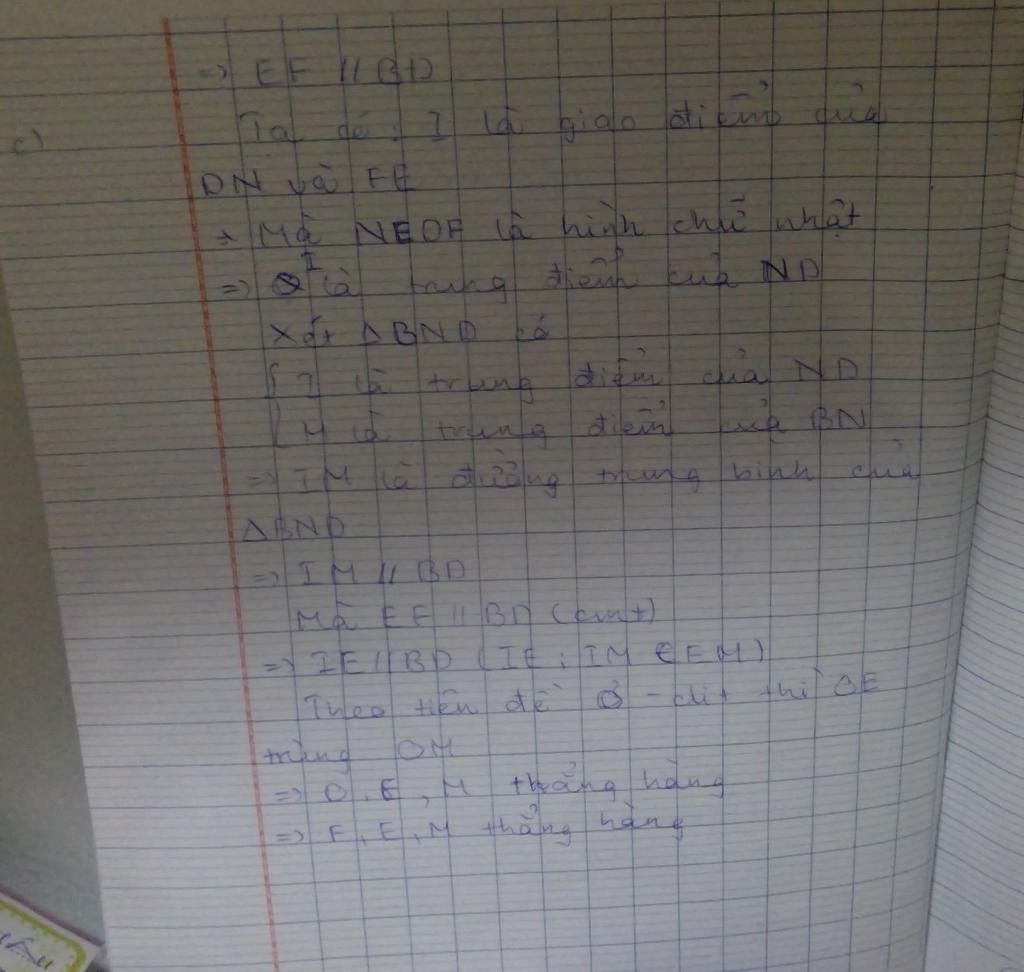 => EF // BD
c) Ta có: I là giao điểm của
DN và FE
+ Mà NEDF là hình chữ nhật
=> I là trung điểm của ND
Xét ΔBND có
{ I là trung điểm của ND
{ M là trung điểm của BN
=> IM là đường trung bình của
ΔBND
=> IM // BD
Mà EF // BD (cmt)
=> IE // BD (IE; IM ∈ EM)
Theo tiên đề Ơ-clit thì OE
trùng OM
=> O, E, M thẳng hàng
=> F, E, M thẳng hàng